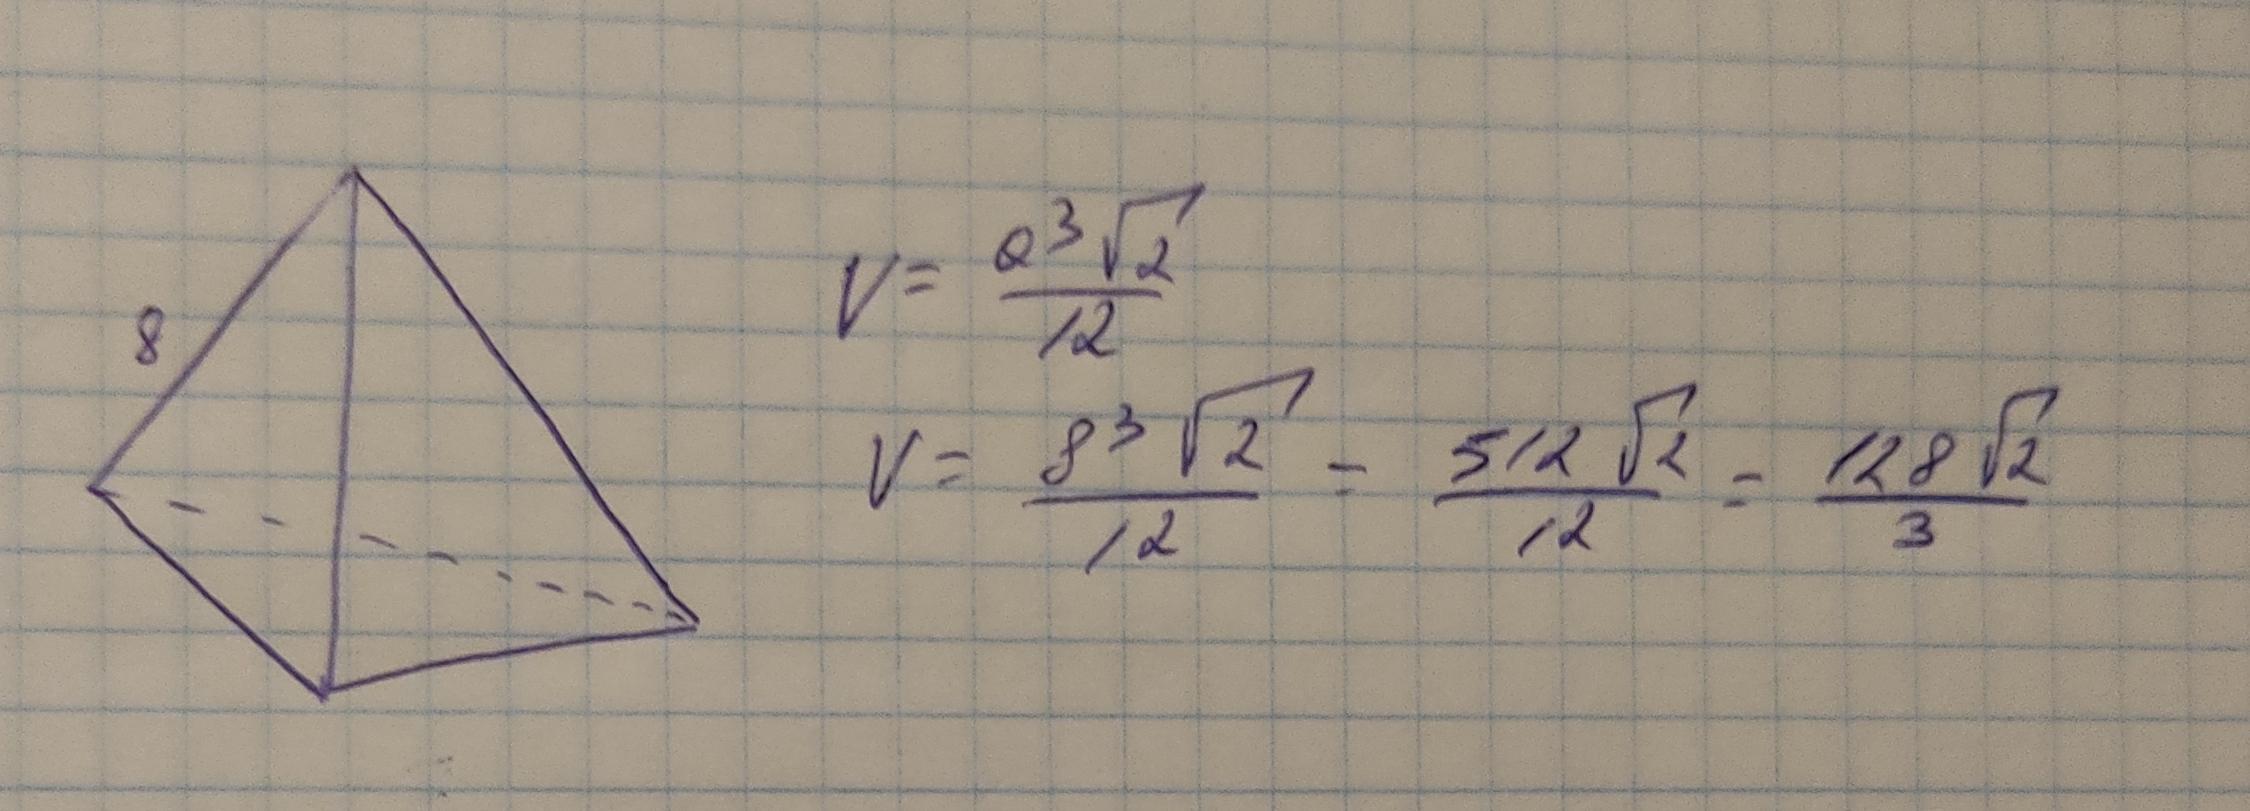 8
V = a³√2/12
V = 8³√2/12 = 512√2/12 = 128√2/3